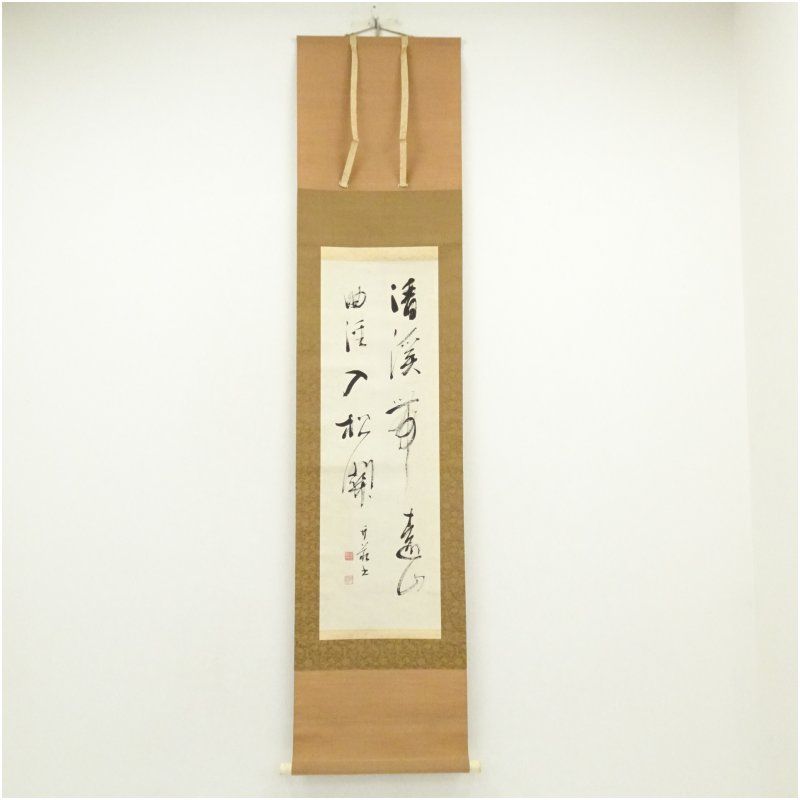 清溪帶遠山
曲徑入松關